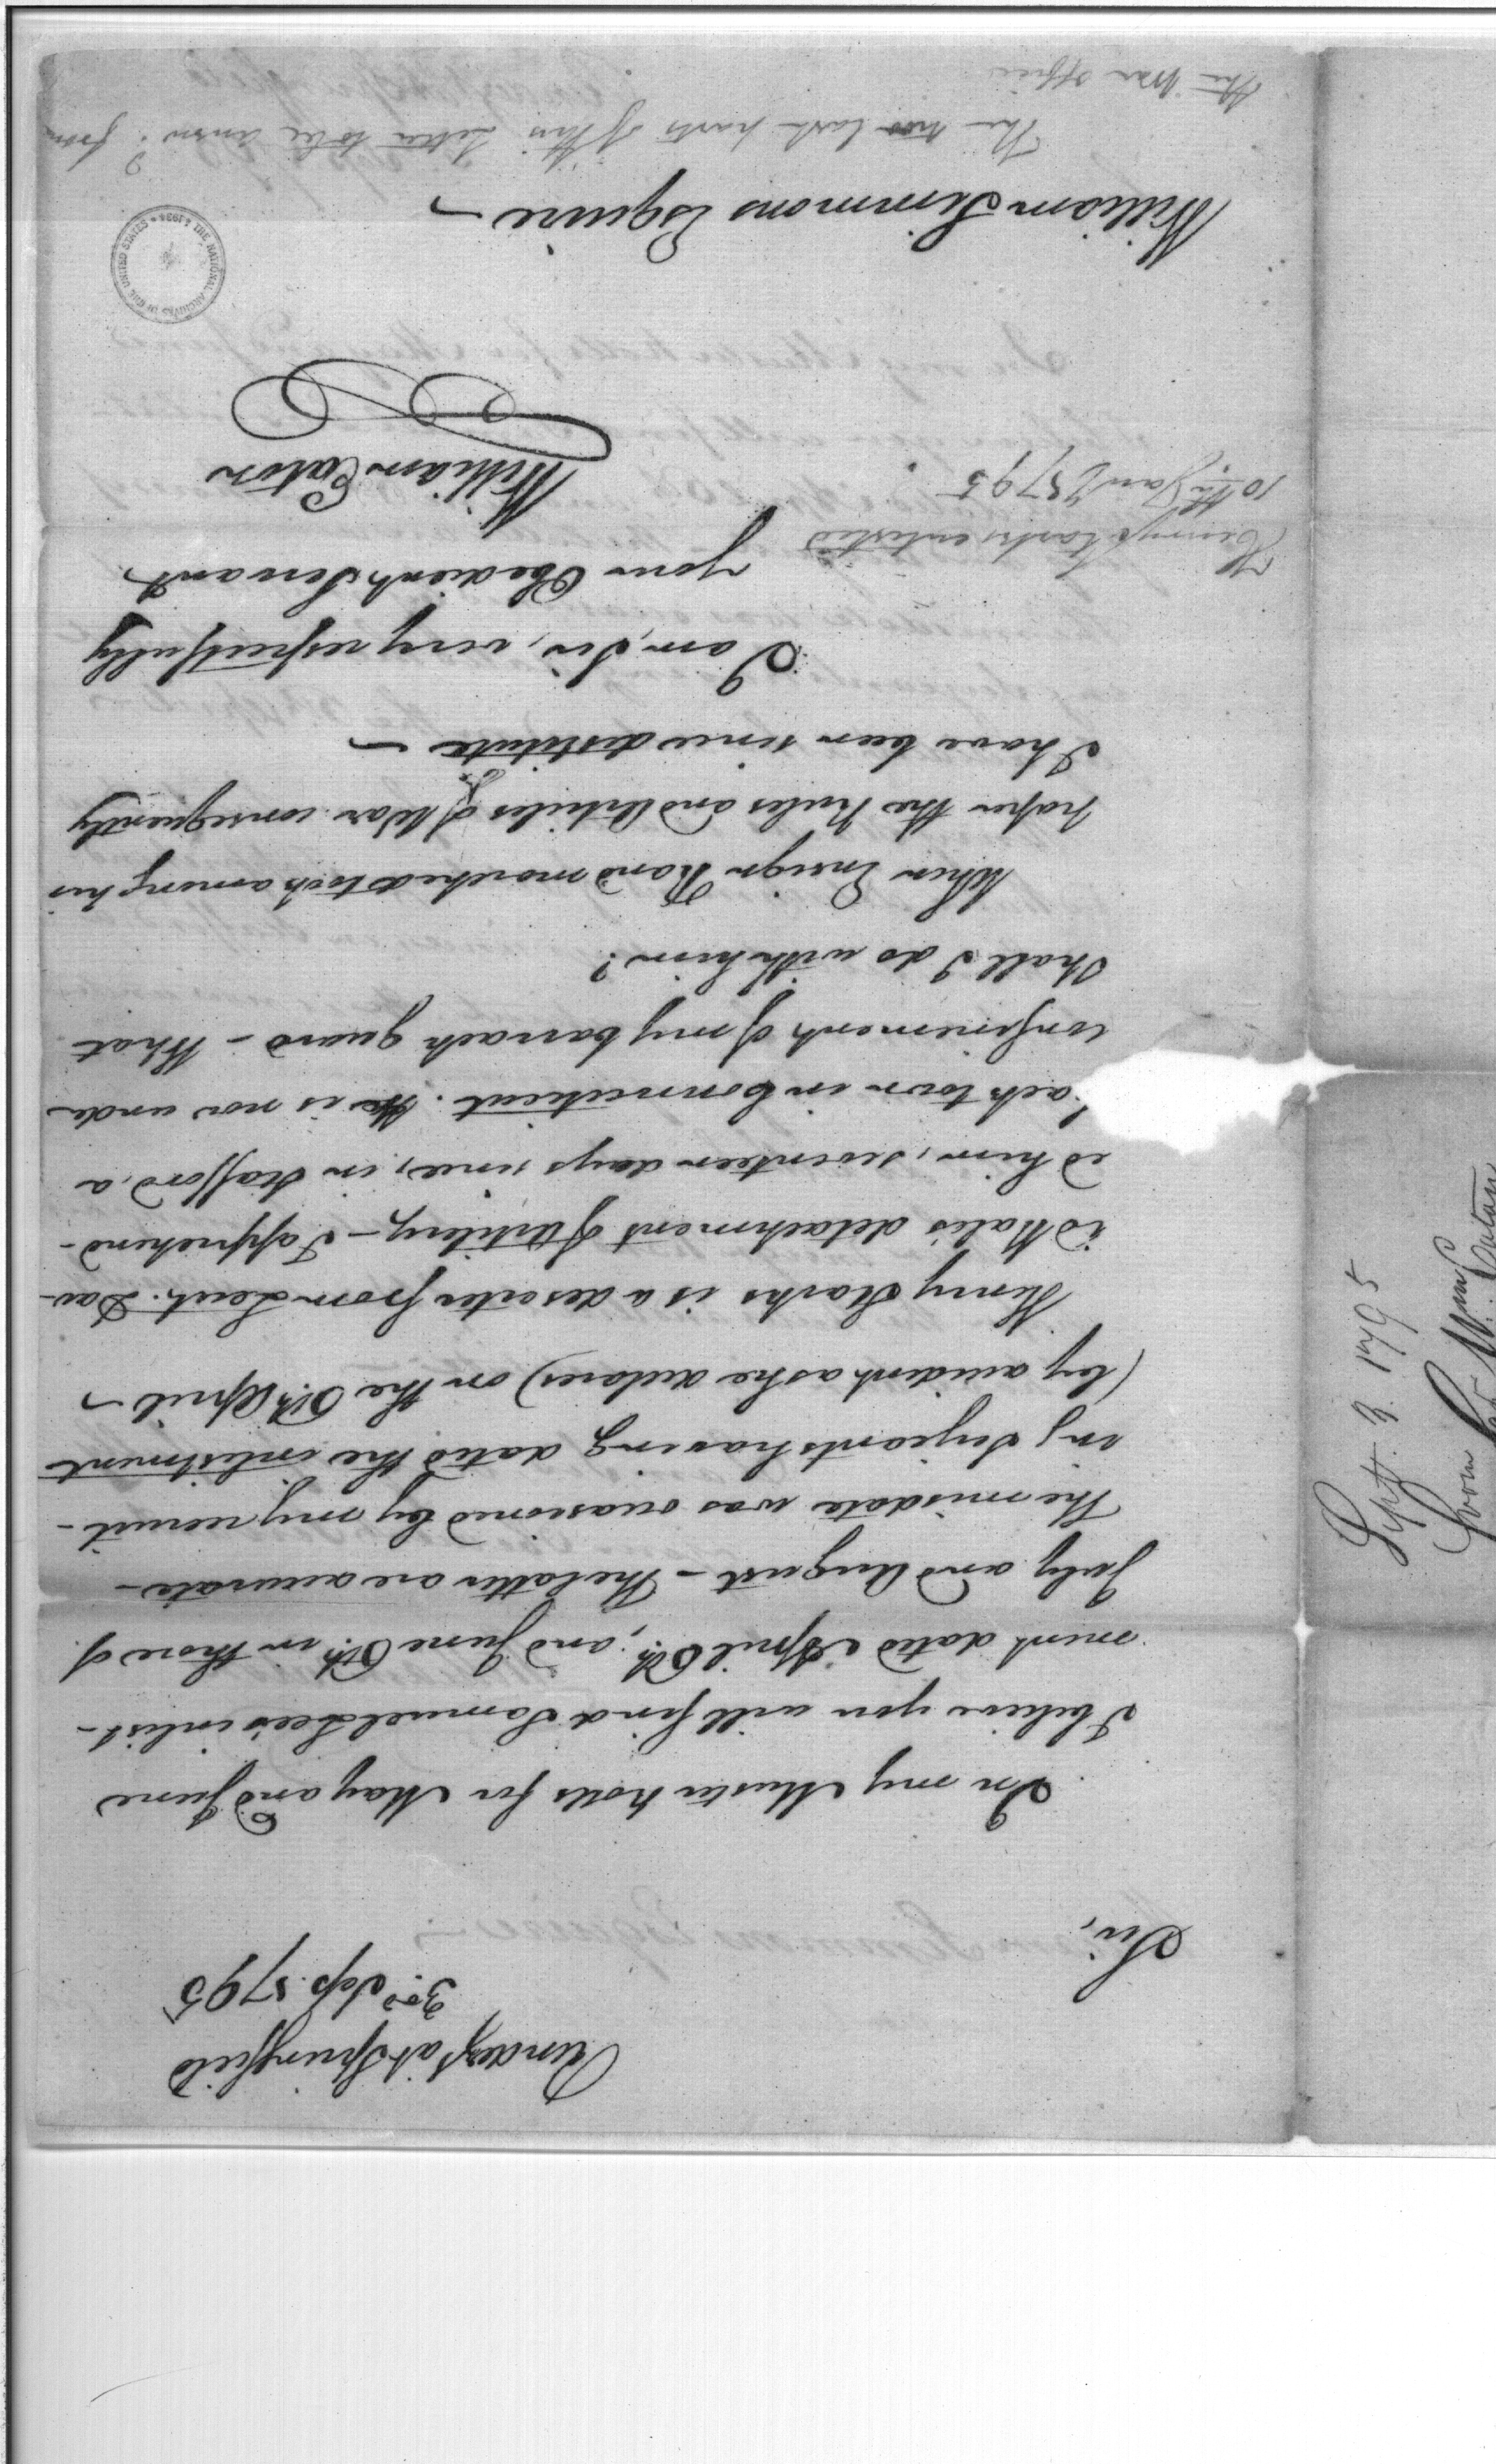 Rendez.s at Springfield
3rd Sep. 1795
Sir,
In my Muster Rolls for May and June
I believe you will find Samuel Lee's inlist-
ment dated April 6th; and June 6th in those of
July and August - The latter are accurate -
The misdate was occasioned by my recruit-
ing Serjeants having dated the inlistment
(by accident as he declares) on the 6th April -
Henry Starks is a deserter from Leut. Dav-
id Hale's detachment of Artilery - I apprehend-
ed him, seventeen days since, in Stafford, a
back town in Connecticut. He is now under
confinement of my barrack guard - What
shall I do with him?
When Ensign Rand marched took among his
paper the Rules and Articles of War consequently
I have been since destitute -
I am, Sir, very respectfully
your Obedient Servant
William Eaton
Henry Starks enlisted
10th Jany 1795
William Simmons Esquire -
The two last parts of this Letter to be answd. from
the War Office
THE NATIONAL ARCHIVES OF THE UNITED STATES 1934
Sept. 3. 1795
From Cap. Wm. Eaton